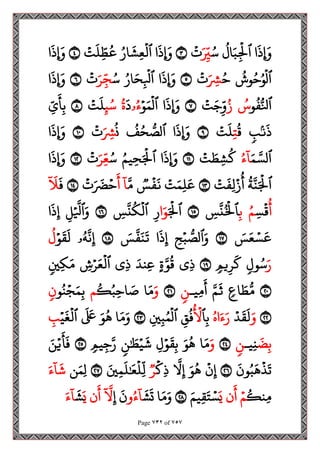 وَإِذَا ٱلْجِبَالُ سُيِّرَتْ ٣ وَإِذَا ٱلْعِشَارُ عُطِّلَتْ ٤ وَإِذَا
ٱلْوُحُوشُ حُشِرَتْ ٥ وَإِذَا ٱلْبِحَارُ سُجِّرَتْ ٦ وَإِذَا
ٱلنُّفُوسُ زُوِّجَتْ ٧ وَإِذَا ٱلْمَوْءُۥدَةُ سُئِلَتْ ٨ بِأَىِّ
ذَنۢبٍ قُتِلَتْ ٩ وَإِذَا ٱلصُّحُفُ نُشِرَتْ ١٠ وَإِذَا
ٱلسَّمَآءُ كُشِطَتْ ١١ وَإِذَا ٱلْجَحِيمُ سُعِّرَتْ ١٢ وَإِذَا
ٱلْجَنَّةُ أُزْلِفَتْ ١٣ عَلِمَتْ نَفْسٌ مَّآ أَحْضَرَتْ ١٤ فَلَآ
أُقْسِمُ بِٱلْخُنَّسِ ١٥ ٱلْجَوَارِ ٱلْكُنَّسِ ١٦ وَٱلَّيْلِ إِذَا
عَسْعَسَ ١٧ وَٱلصُّبْحِ إِذَا تَنَفَّسَ ١٨ إِنَّهُۥ لَقَوْلُ
رَسُولٍ كَرِيمٍ ١٩ ذِى قُوَّةٍ عِندَ ذِى ٱلْعَرْشِ مَكِينٍ
٢٠ مُّطَاعٍ ثَمَّ أَمِينٍ ٢١ وَمَا صَاحِبُكُم بِمَجْنُونٍ
٢٢ وَلَقَدْ رَءَاهُ بِٱلْأُفُقِ ٱلْمُبِينِ ٢٣ وَمَا هُوَ عَلَى ٱلْغَيْبِ
بِضَنِينٍ ٢٤ وَمَا هُوَ بِقَوْلِ شَيْطَٰنٍ رَّجِيمٍ ٢٥ فَأَيْنَ
تَذْهَبُونَ ٢٦ إِنْ هُوَ إِلَّا ذِكْرٌ لِّلْعَٰلَمِينَ ٢٧ لِمَن شَآءَ
مِنكُمْ أَن يَسْتَقِيمَ ٢٨ وَمَا تَشَآءُونَ إِلَّآ أَن يَشَآءَ
Page ٧٣٢ of ٧٥٧